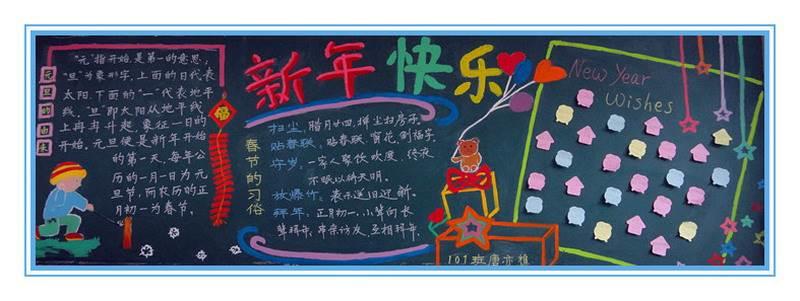 元旦的由来
"元"指开始,是第一的意思;
"旦"为象形字,上面的日代表
太阳,下面的"一"代表地平
线。"旦"即太阳从地平线
上冉冉升起,象征一日的
开始。元旦便是新年开始
的第一天。每年公
历的一月一日为元
旦节,而农历的正
月初一为春节。
福
新年快乐
春节的习俗
扫尘:腊月廿四,掸尘扫房子。
贴春联:贴春联、窗花、倒福字。
守岁:一家人聚饮欢度,终夜
不眠以待天明。
放爆竹:表示送旧迎新。
拜年:正月初一,小辈向长
辈拜年,串亲访友,互相拜年。
New Year
Wishes
101班唐亦